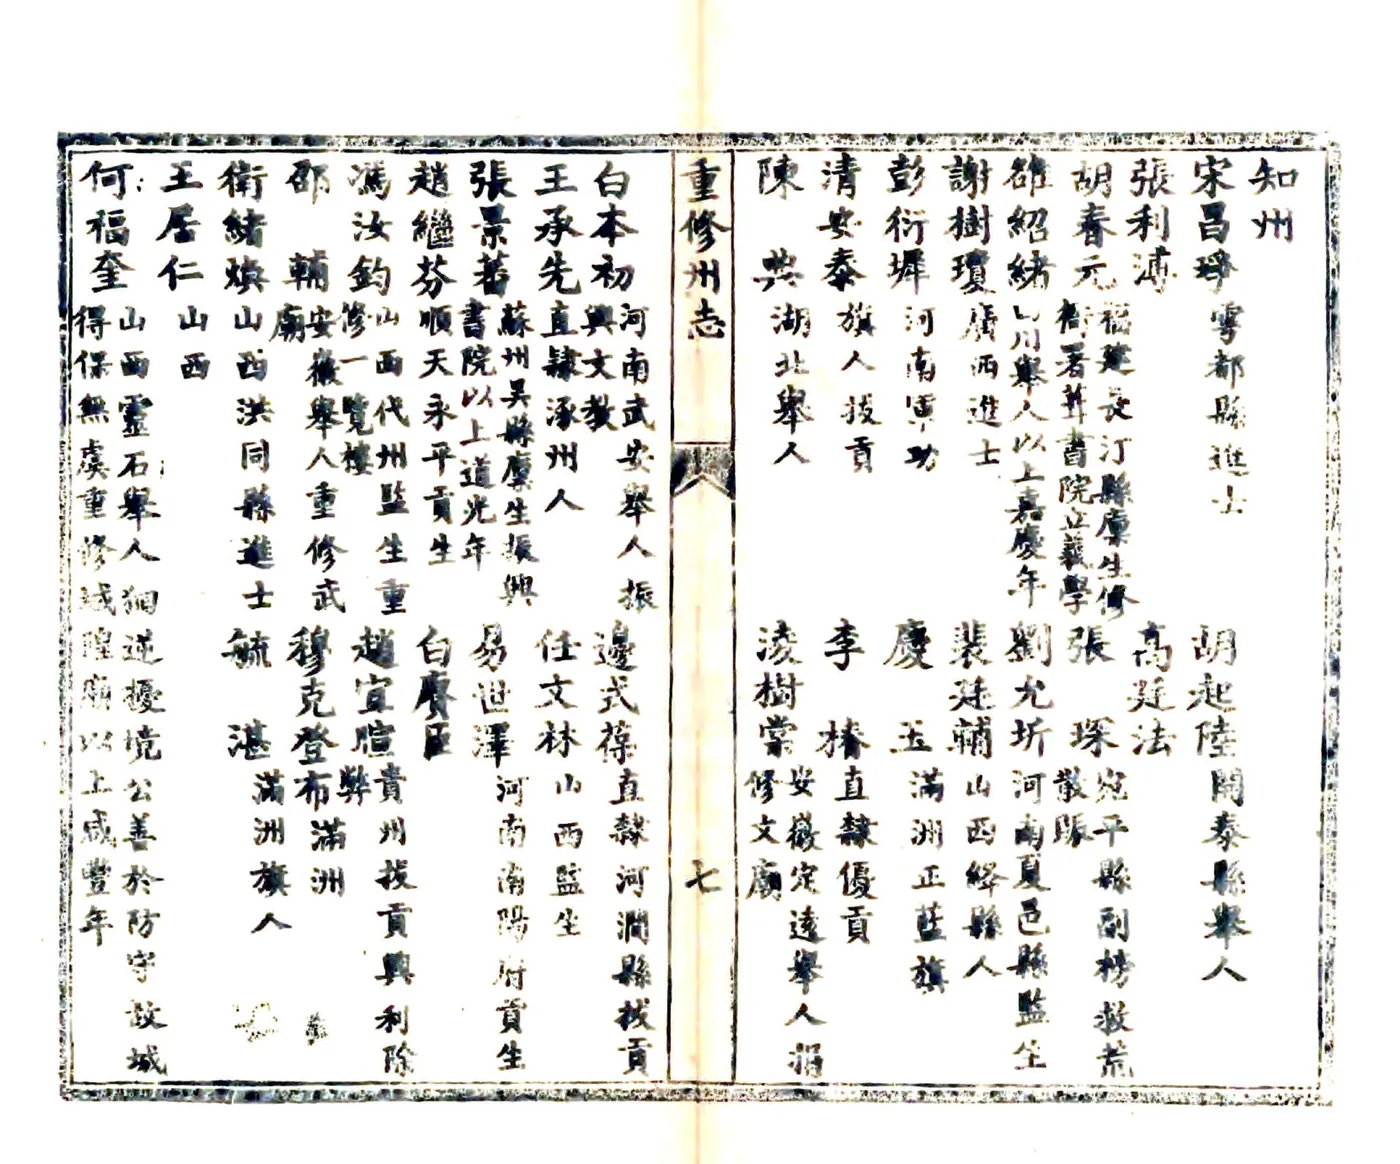 知州
宋昌琤 雩都縣進士 胡起陸 開泰縣舉人
張利溥 高廷法
胡春元 福建長汀縣廩生修衙署葺書院立義學 張琛 宛平縣副榜救荒散賑
雒紹緒 川舉人以上嘉慶年 劉允圻 河南夏邑縣監生
謝樹瓊 廣西進士 裴廷輔 山西絳縣人
彭衍墀 河南軍功 慶玉 滿洲正藍旗
清安泰 旗人拔貢 李椿 直隸優貢
陳典 湖北舉人 淩樹棠 安徽定遠舉人捐修文廟
重修州志 七
白本初 河南武安舉人振興文教 邊式葆 直隸河澗縣拔貢
王承先 直隸涿州人 任文林 山西監生
張景蕃 蘇州吳縣廩生振興書院以上道光年 易世澤 河南南陽府貢生
趙繼芬 順天永平貢生 白賡臣
馮汝鈞 山西代州監生重修一覽樓 趙宜暄 貴州拔貢興利除弊
邵輔 安徽舉人重修武廟 穆克登布 滿洲
衛緒煥 山西洪同縣進士 毓湛 滿洲旗人
王居仁 山西
何福奎 山西靈石舉人 逆擾境公善於防守故城得保無虞重修城隍廟以上咸豐年